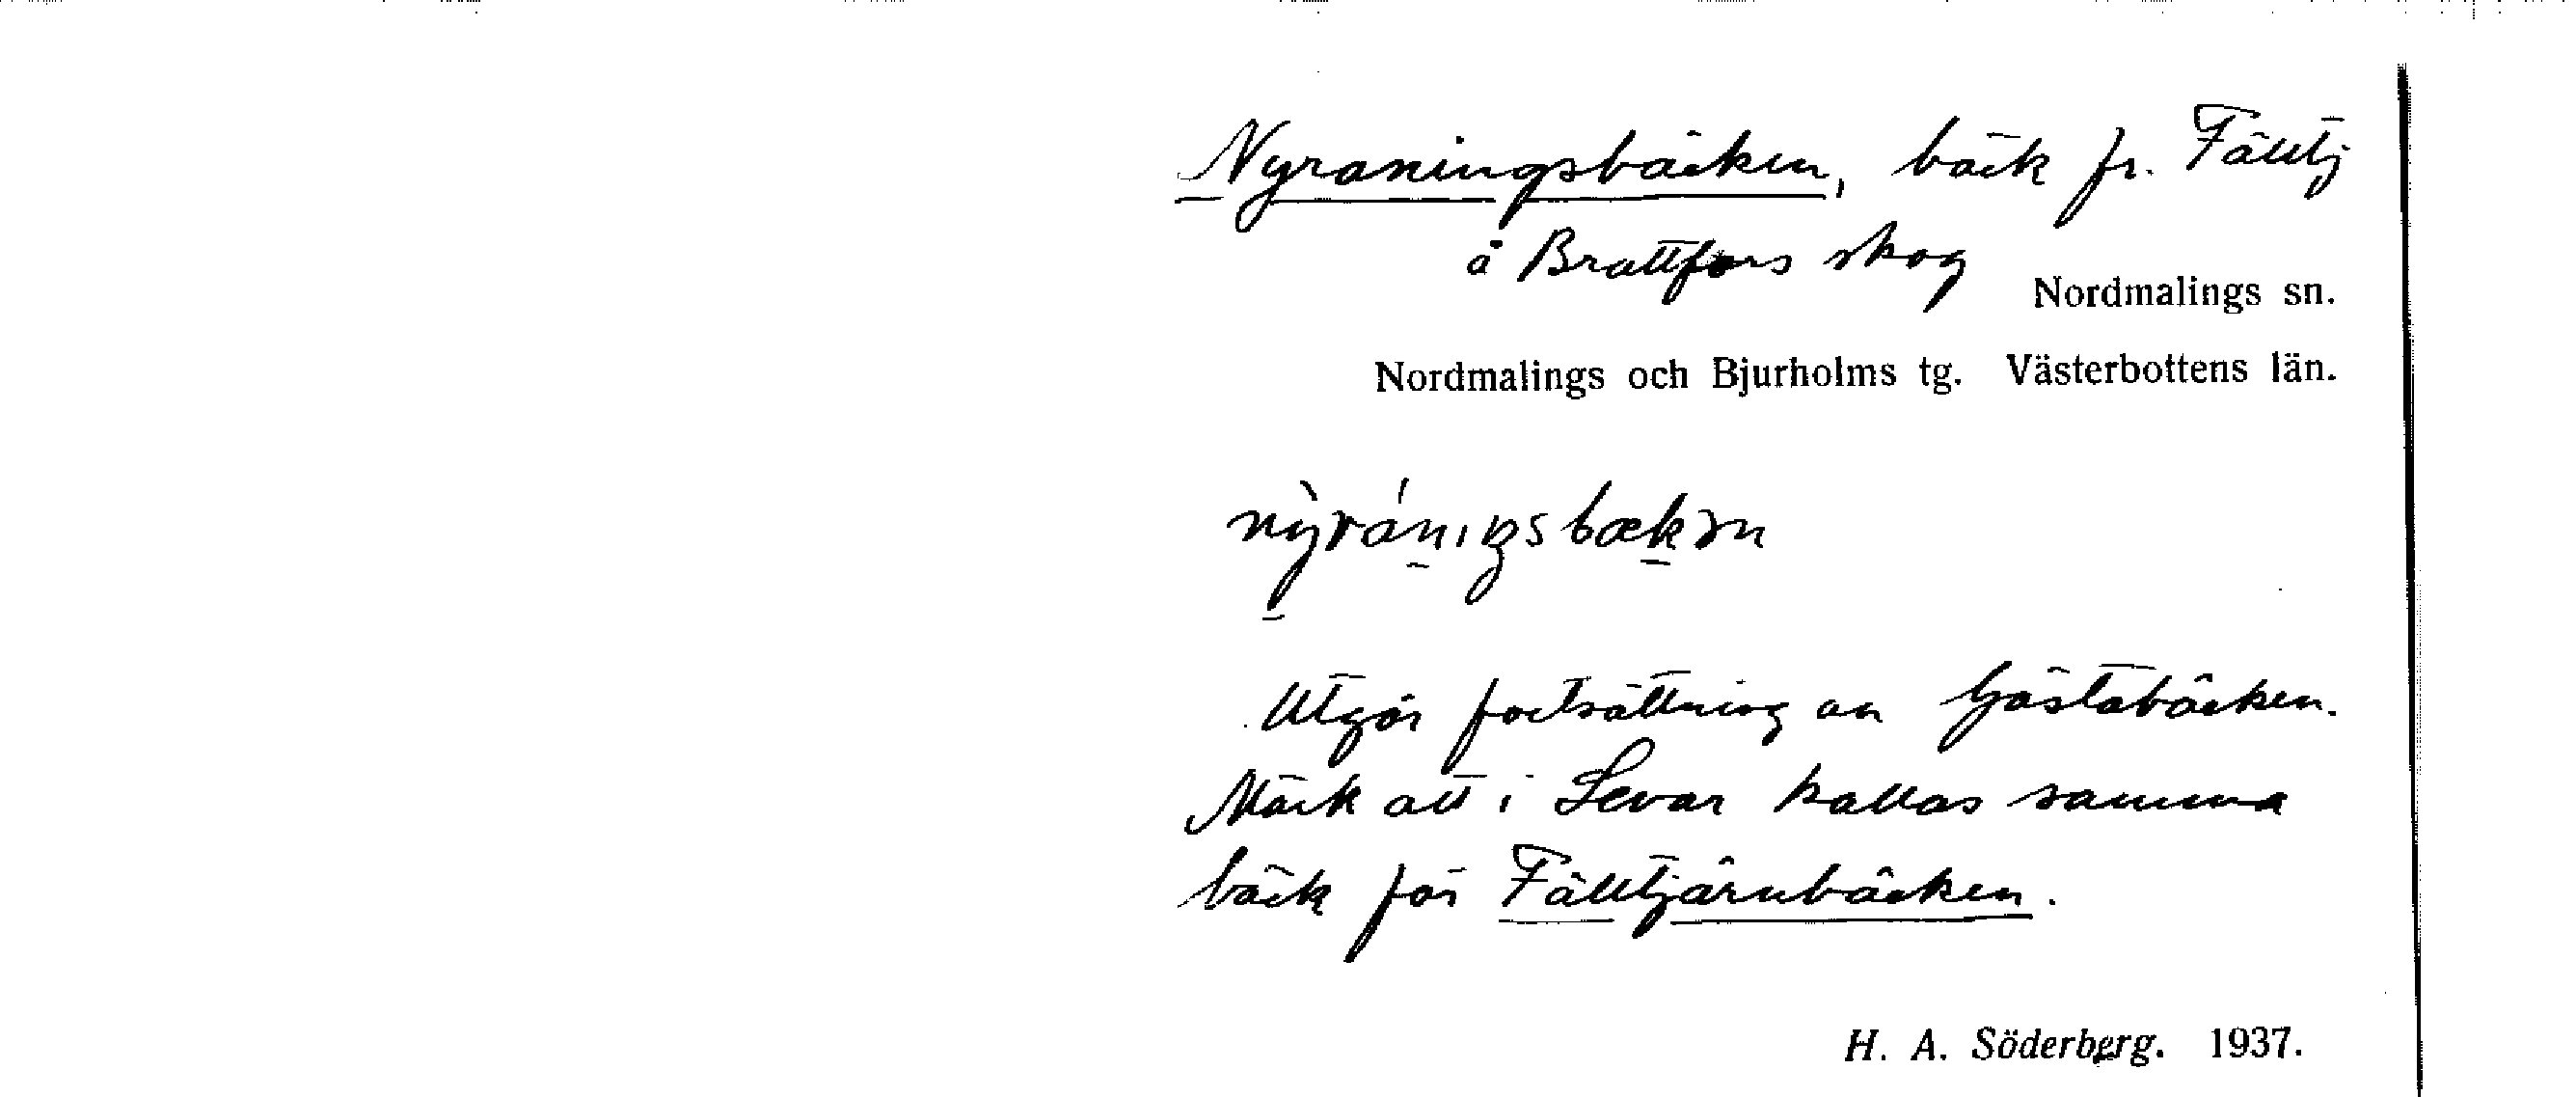 Nyraningsbäcken, bäck fr. Fälltj
å Brattfors skog
Nordmalings sn.
Nordmalings och Bjurholms tg. Västerbottens län.
Utgör fortsättning av Gästabäcken.
Märk att i Levar kallas samma
bäck för Fälltjärnbäcken.
H. A. Söderberg. 1937.